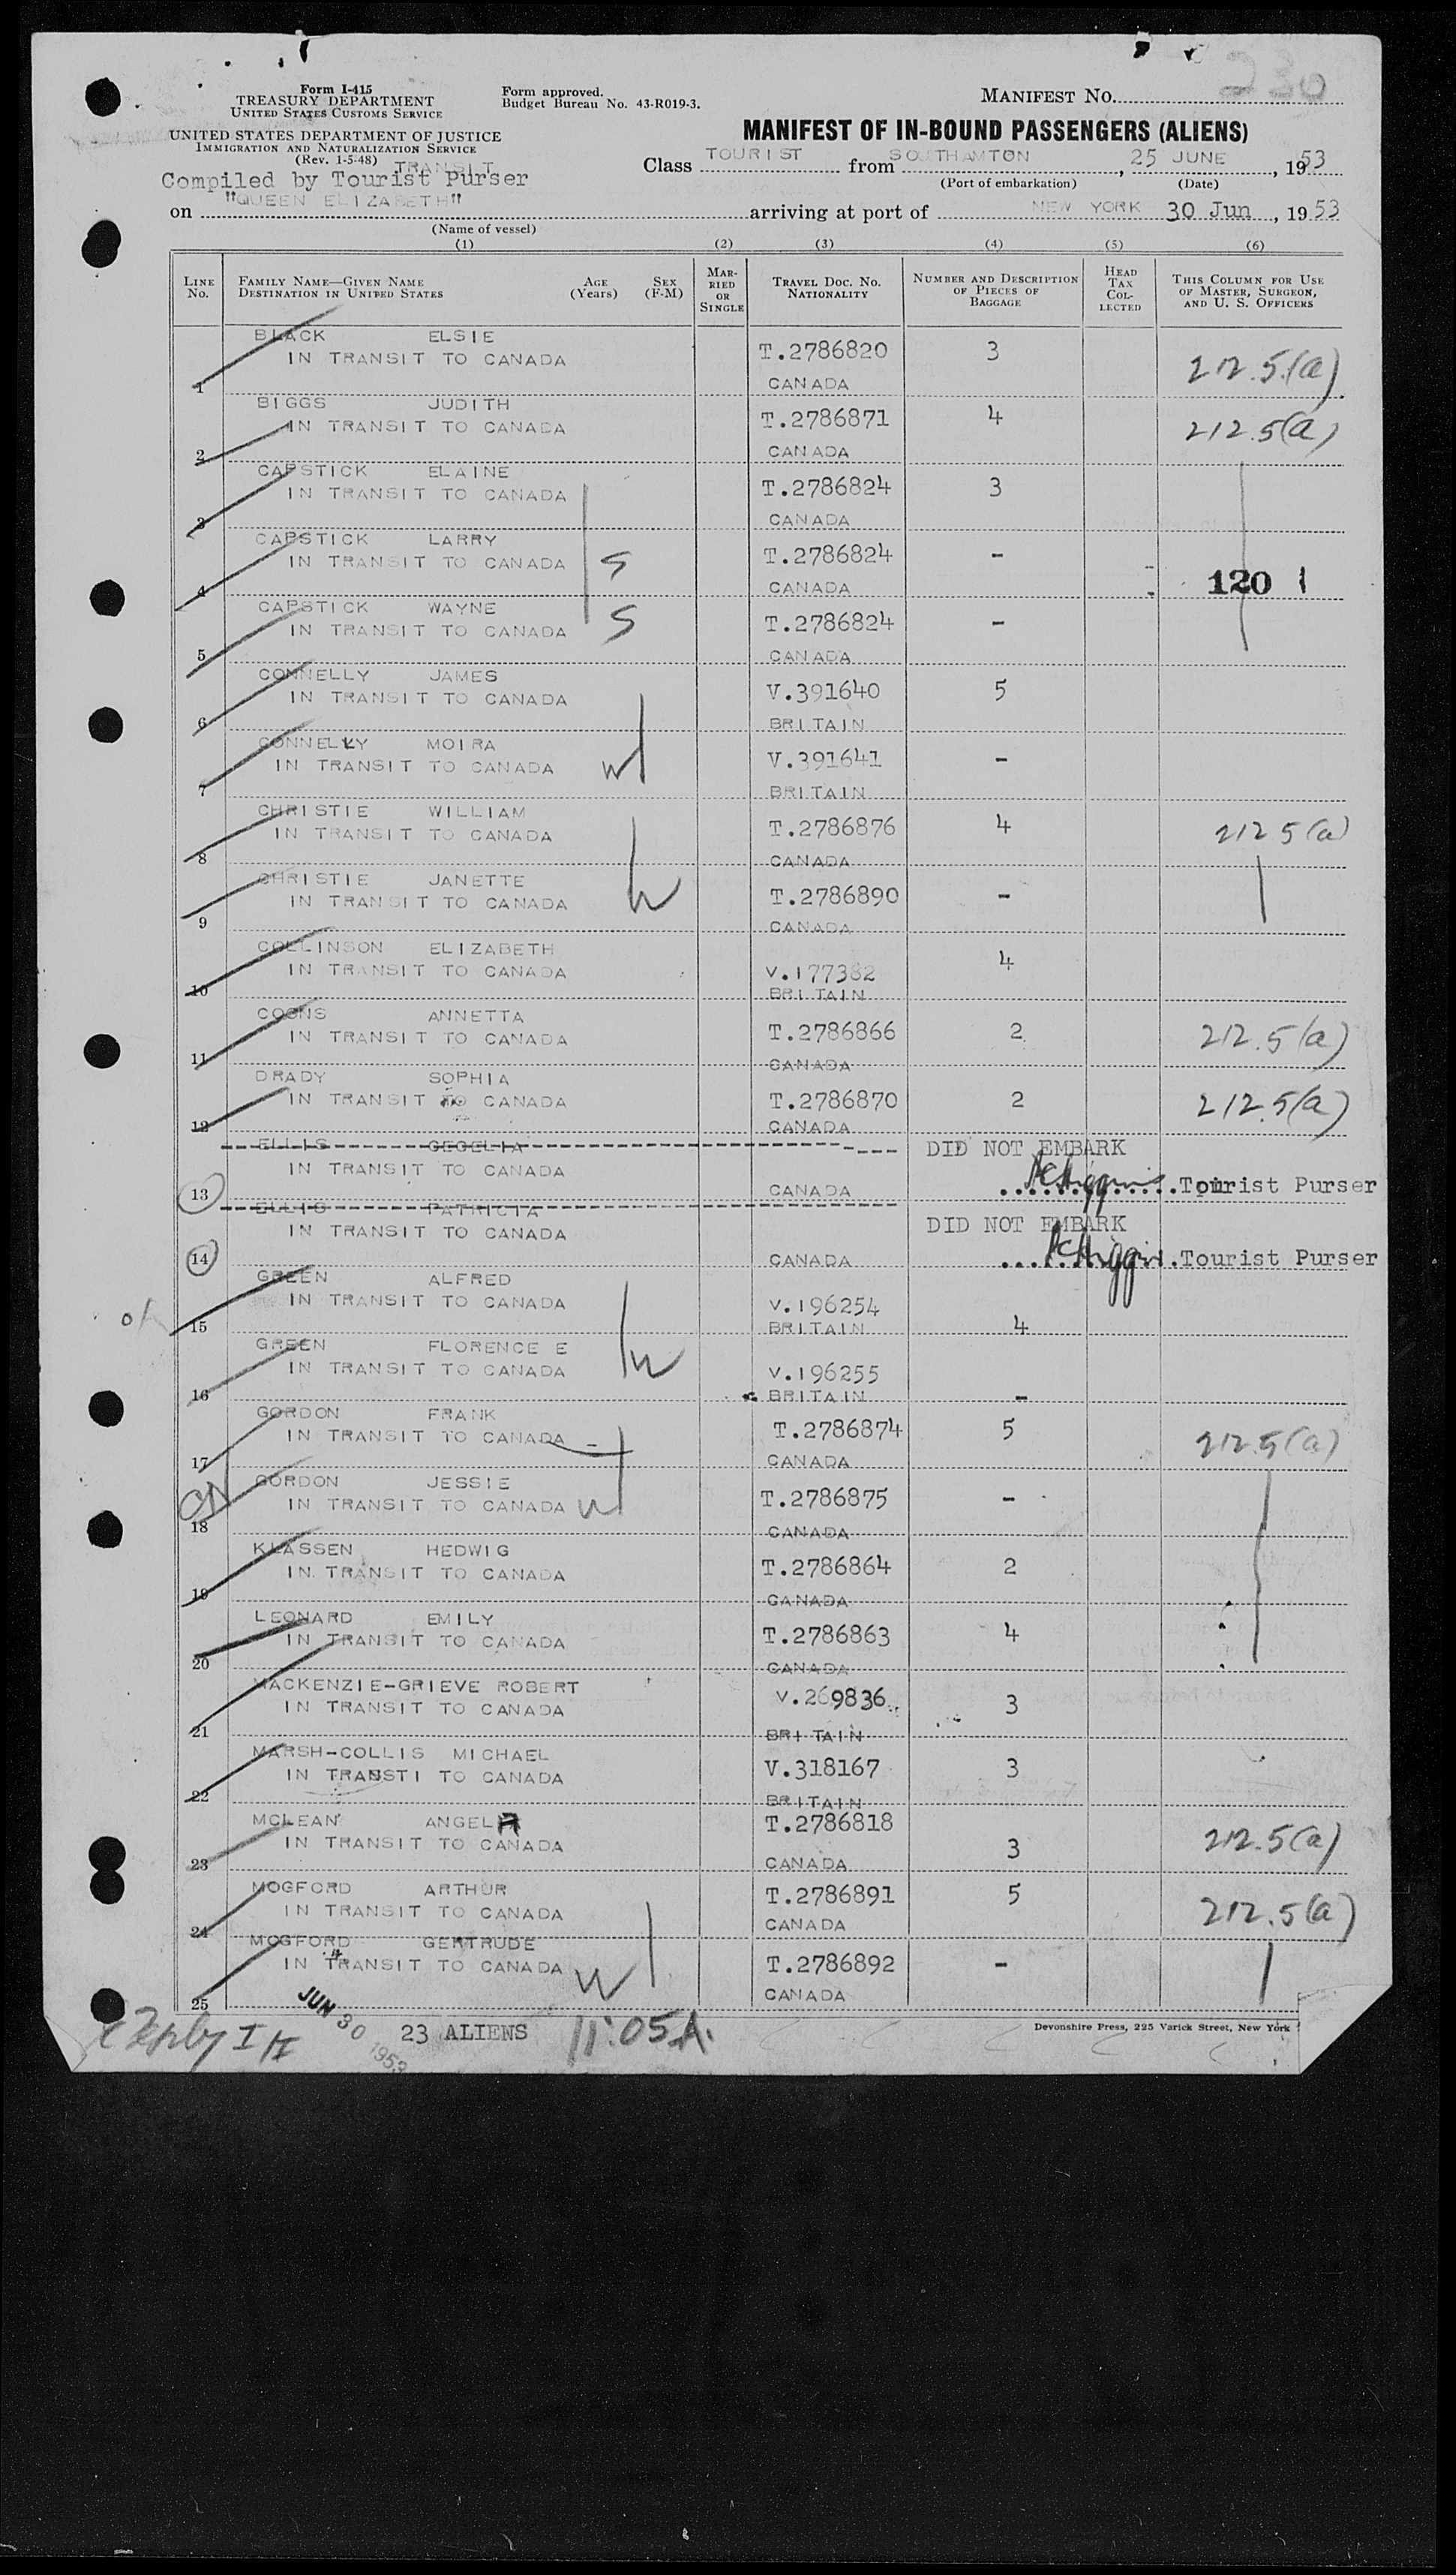 230
Form I-415
TREASURY DEPARTMENT
UNITED STATES CUSTOMS SERVICE
Form approved.
Budget Bureau No. 43-R019-3.
MANIFEST No.
UNITED STATES DEPARTMENT OF JUSTICE
IMMIGRATION AND NATURALIZATION SERVICE
(Rev. 1-5-48)
TRANSIT
MANIFEST OF IN-BOUND PASSENGERS (ALIENS)
Compiled by Tourist Purser
Class TOURIST from SOUTHAMTON, 25 JUNE, 1953
(Port of embarkation) (Date)
on "QUEEN ELIZABETH" arriving at port of NEW YORK 30 Jun, 1953
(Name of vessel)
(1) (2) (3) (4) (5) (6)
LINE No. FAMILY NAME—GIVEN NAME DESTINATION IN UNITED STATES AGE (Years) SEX (F-M) MARRIED OR SINGLE TRAVEL DOC. NO. NATIONALITY NUMBER AND DESCRIPTION OF PIECES OF BAGGAGE HEAD TAX COLLECTED THIS COLUMN FOR USE OF MASTER, SURGEON, AND U. S. OFFICERS
BLACK ELSIE
1 IN TRANSIT TO CANADA T.2786820 3 212.5(a)
CANADA
BIGGS JUDITH
2 IN TRANSIT TO CANADA T.2786871 4 212.5(a)
CANADA
CAPSTICK ELAINE
3 IN TRANSIT TO CANADA T.2786824 3
CANADA
CAPSTICK LARRY
4 IN TRANSIT TO CANADA S T.2786824 - 120
CANADA
CAPSTICK WAYNE
5 IN TRANSIT TO CANADA S T.2786824 -
CANADA
CONNELLY JAMES
6 IN TRANSIT TO CANADA V.391640 5
BRITAIN
CONNELLY MOIRA
7 IN TRANSIT TO CANADA W V.391641 -
BRITAIN
CHRISTIE WILLIAM
8 IN TRANSIT TO CANADA T.2786876 4 212 5(a)
CANADA
CHRISTIE JANETTE
9 IN TRANSIT TO CANADA W T.2786890 -
CANADA
COLLINSON ELIZABETH
10 IN TRANSIT TO CANADA V.177382 4
BRITAIN
COONS ANNETTA
11 IN TRANSIT TO CANADA T.2786866 2 212.5(a)
CANADA
DRADY SOPHIA
12 IN TRANSIT TO CANADA T.2786870 2 212.5(a)
CANADA
ELLIS CECELIA DID NOT EMBARK
13 IN TRANSIT TO CANADA CANADA Tourist Purser
ELLIS PATRICIA DID NOT EMBARK
14 IN TRANSIT TO CANADA CANADA Tourist Purser
GREEN ALFRED
15 IN TRANSIT TO CANADA V.196254
BRITAIN 4
GREEN FLORENCE E
16 IN TRANSIT TO CANADA W V.196255
BRITAIN -
GORDON FRANK
17 IN TRANSIT TO CANADA T.2786874 5 212.5(a)
CANADA
GORDON JESSIE
18 IN TRANSIT TO CANADA W T.2786875 -
CANADA
KLASSEN HEDWIG
19 IN TRANSIT TO CANADA T.2786864 2
CANADA
LEONARD EMILY
20 IN TRANSIT TO CANADA T.2786863 4
CANADA
MACKENZIE-GRIEVE ROBERT
21 IN TRANSIT TO CANADA V.269836 3
BRITAIN
MARSH-COLLIS MICHAEL
22 IN TRANSTI TO CANADA V.318167 3
BRITAIN
MCLEAN ANGELA T.2786818
23 IN TRANSIT TO CANADA 3 212.5(a)
CANADA
MOGFORD ARTHUR T.2786891 5
24 IN TRANSIT TO CANADA CANADA 212.5(a)
MOGFORD GERTRUDE
25 IN TRANSIT TO CANADA W T.2786892 -
CANADA
JUN 30 1953
23 ALIENS 11:05A.
Devonshire Press, 225 Varick Street, New York